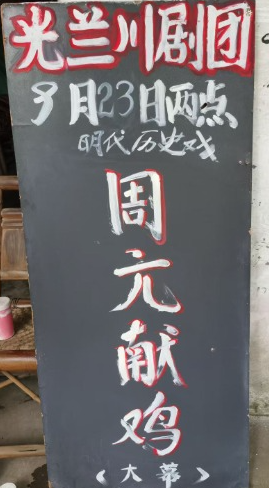 光兰川剧团
9月23日两点
明代历史戏
周元献鸡
《大幕》